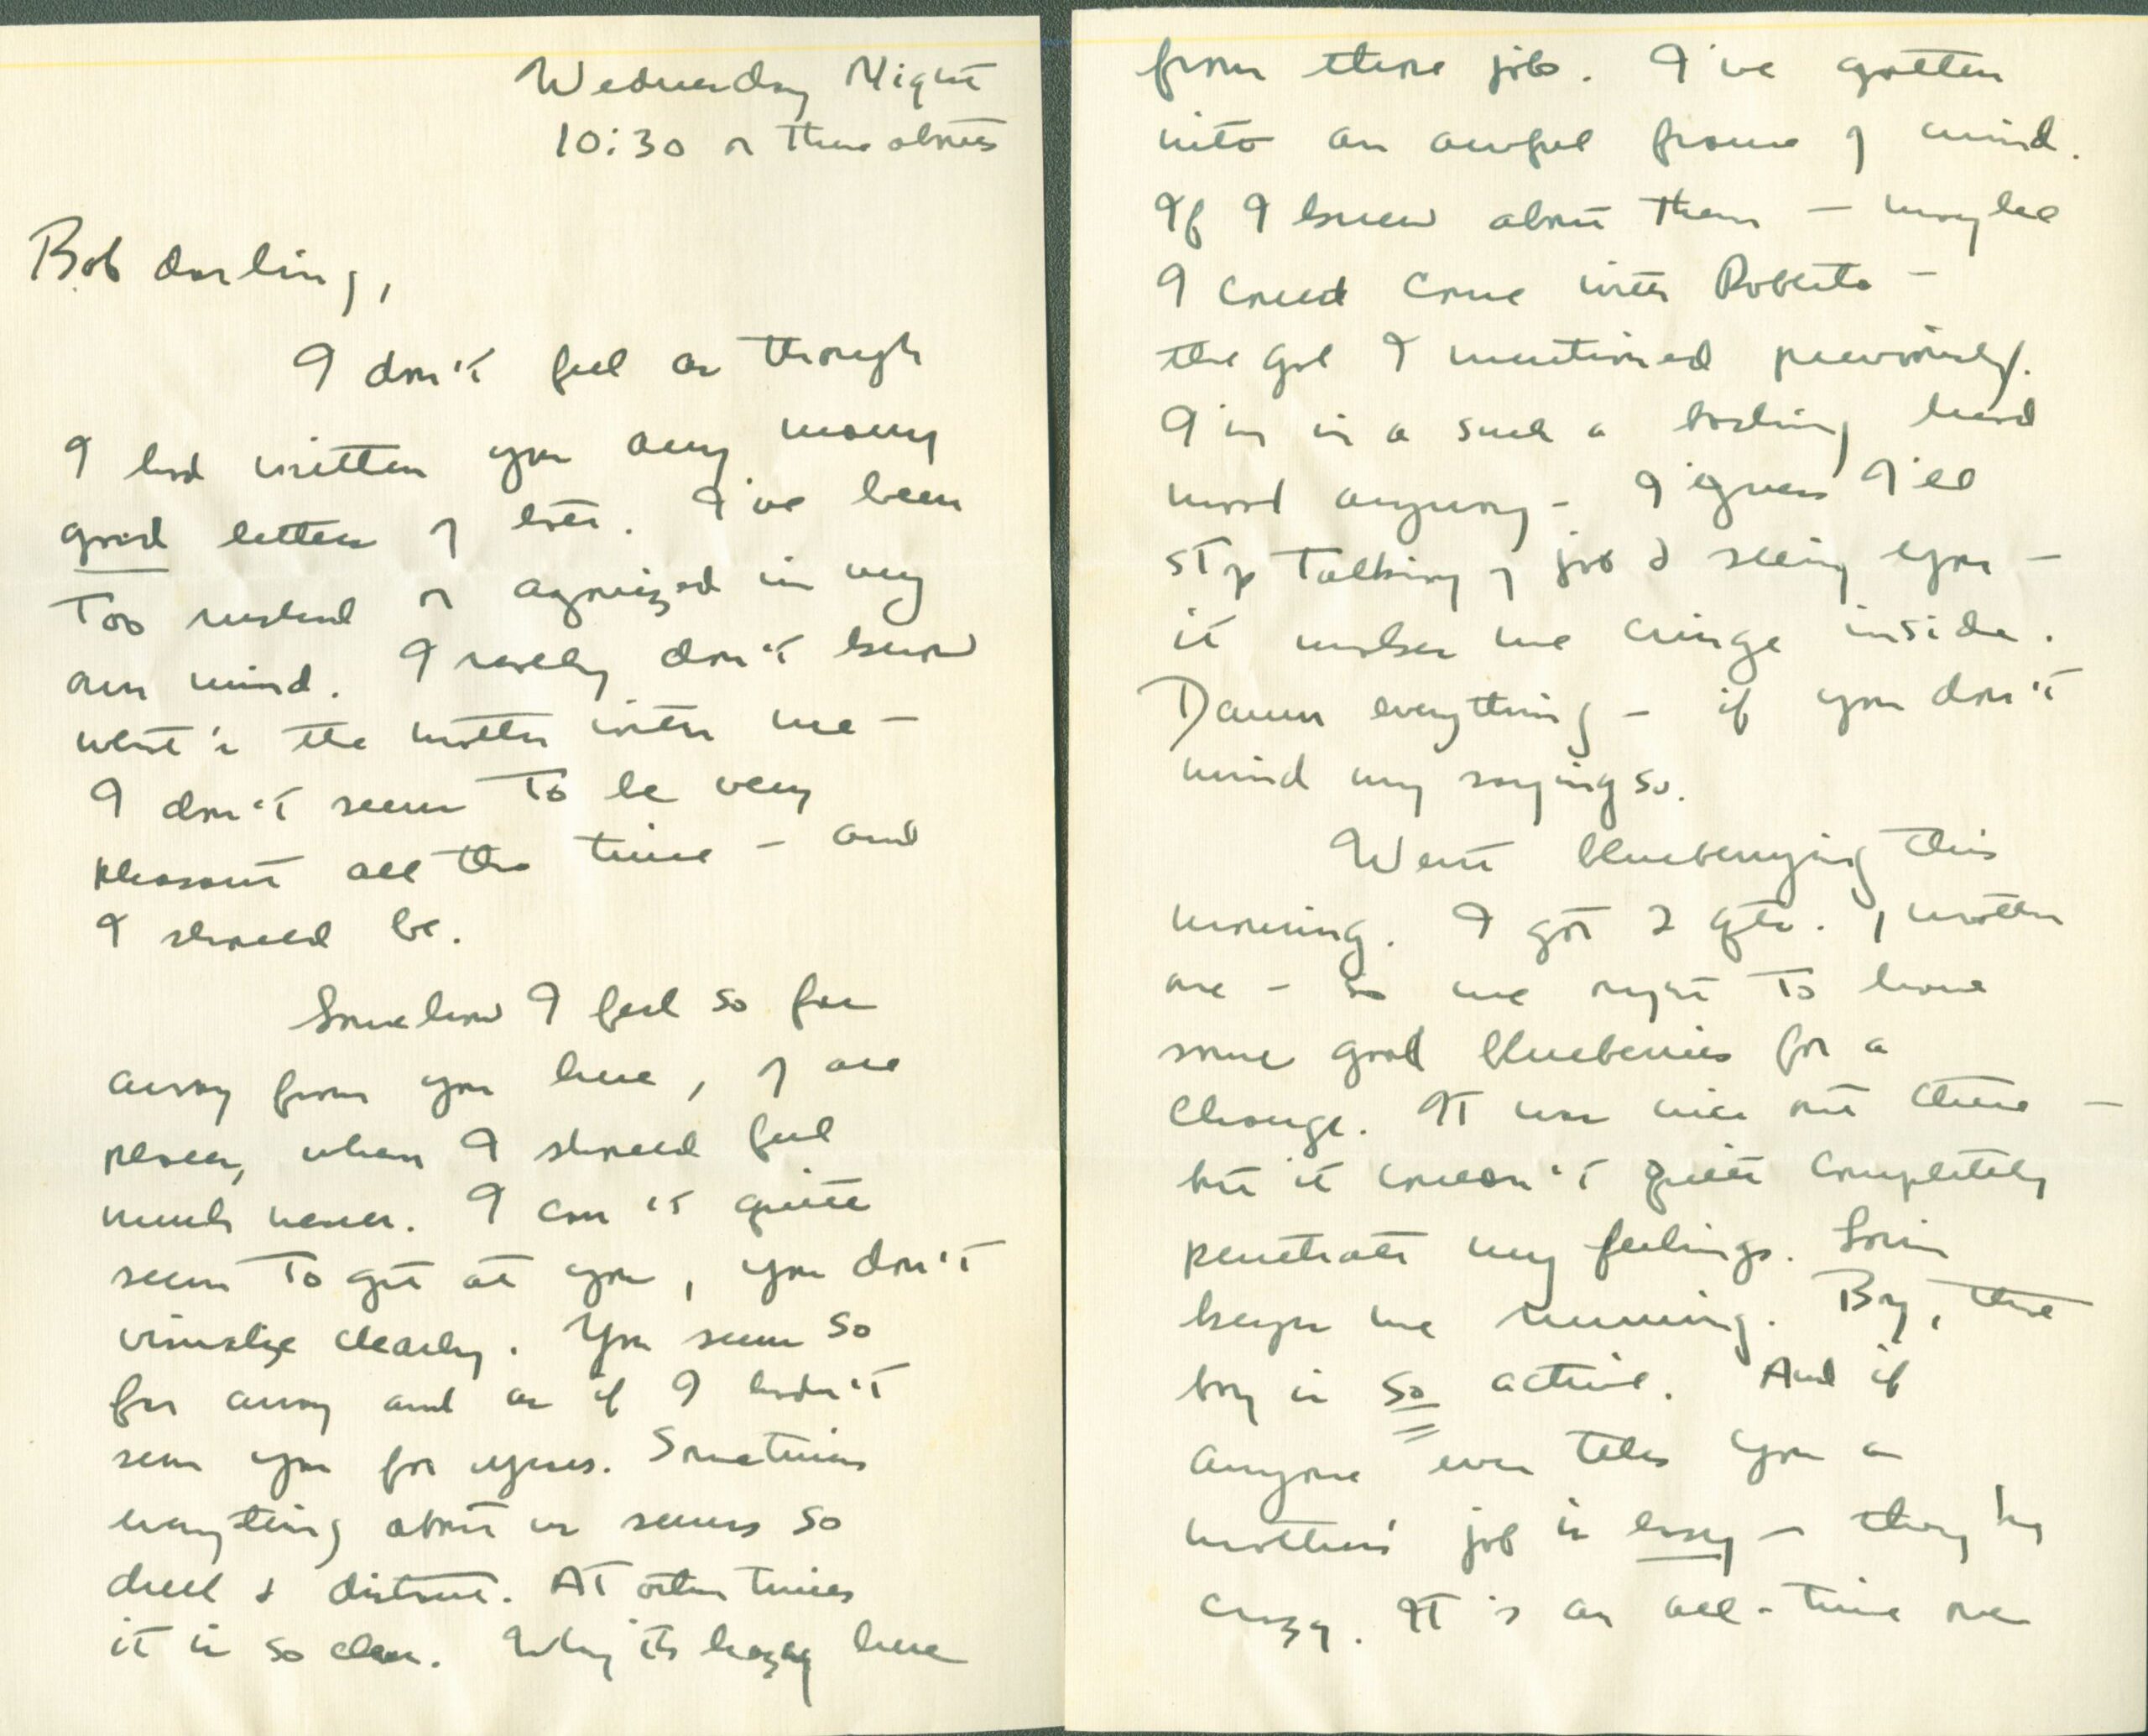 Wednesday Night
10:30 or thereabouts
Bob darling,
I don't feel as though
I had written you any many
good letters of late. I've been
too rushed or agonized in my
own mind. I really don't know
what's the matter with me –
I don't seem to be very
pleasant all the time – and
I should be.
Somehow I feel so far
away from you here, of all
places, when I should feel
much nearer. I can't quite
seem to get at you, you don't
visualize clearly. You seem so
far away and as if I hadn't
seen you for years. Sometimes
everything about us seems so
dull & distant. At other times
it is so clear. Why it's hazy here
from there job. I've gotten
into an awful frame of mind.
If I knew about them – maybe
I could come with Roberta –
the girl I mentioned previously.
I'm in a such a hard
mood anyway – I guess I'll
stop talking of job & seeing you –
it makes me cringe inside.
Damn everything – if you don't
mind my saying so.
Went blueberrying this
morning. I got 2 qts. , mother
one – so we ought to have
some good blueberries for a
change. It was nice out there –
but it couldn't quite completely
penetrate my feelings.
keeps me running. Boy, that
boy is so active. And if
anyone ever tells you a
mothers' job is easy – they're
crazy. It's an all-time one